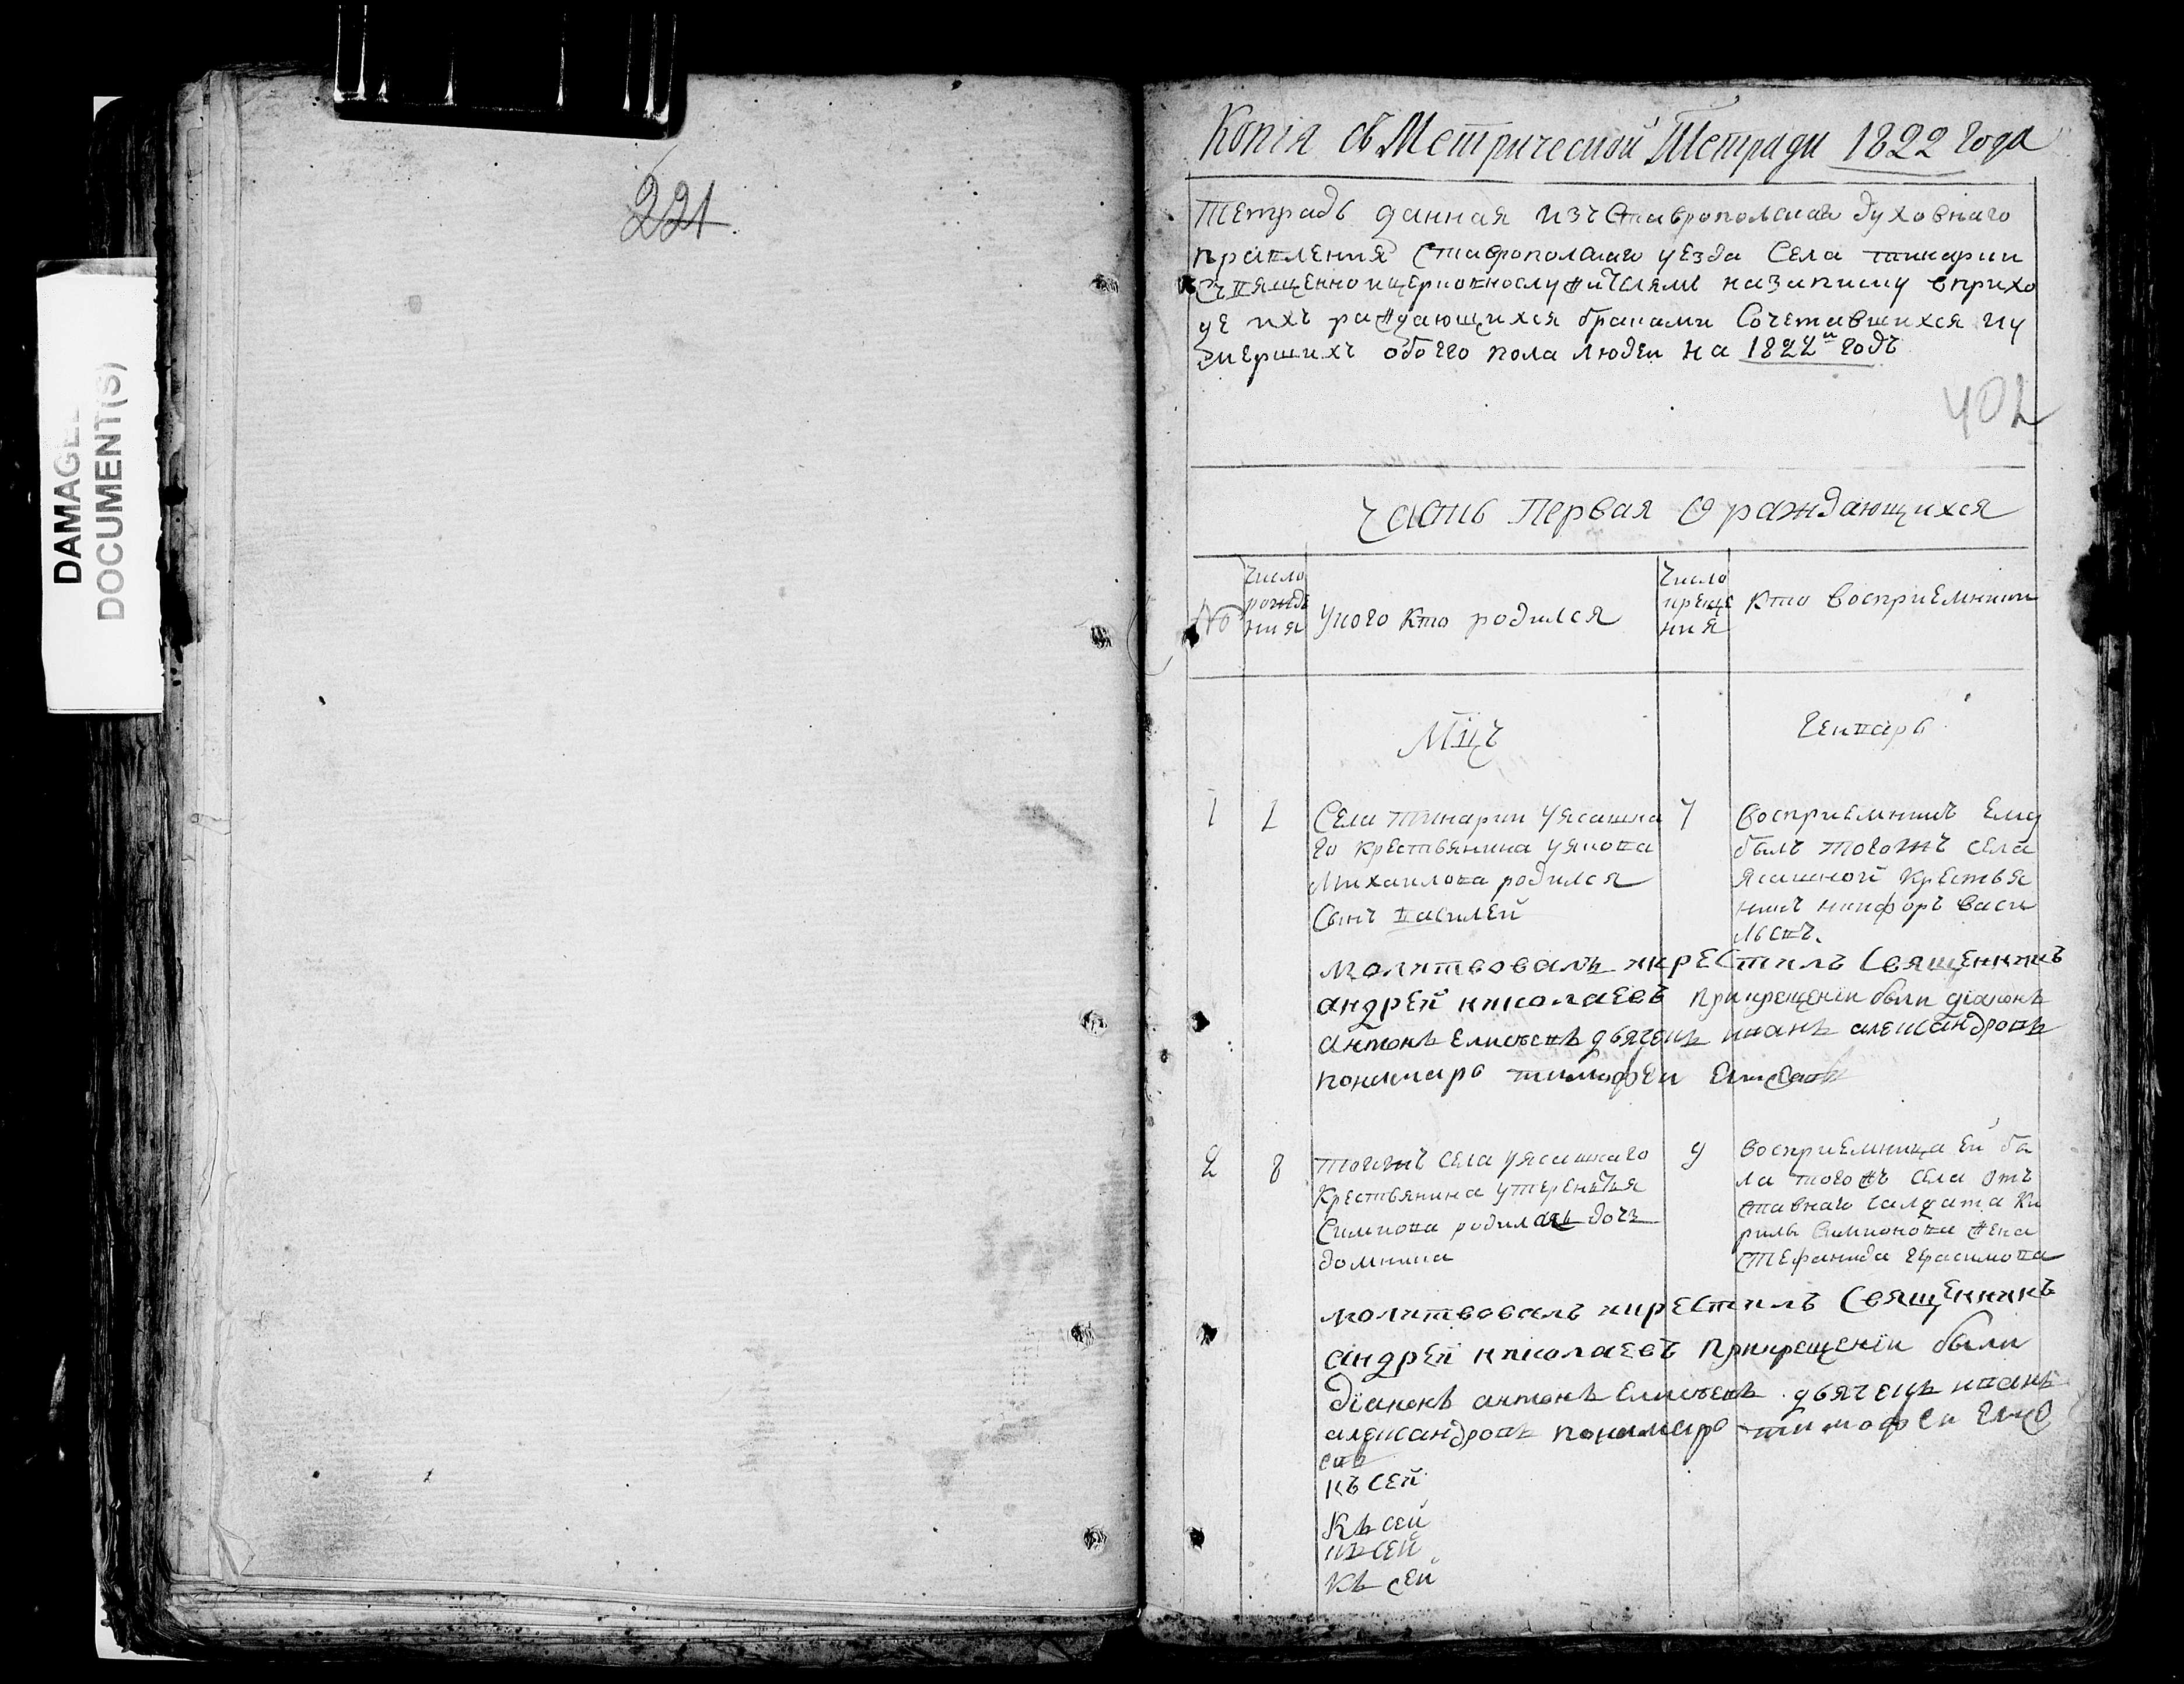 DAMAGE
DOCUMENT(S)
221.
Копія съ Метрической Тетради 1822 года
Тетрадь данная изъ Ставрополскаго духовнаго
правления Ставрополскаго уезда Села тинарки
Священно и церковнослужителямъ на записку в прихо
де ихъ раждающихся браками Сочетавшихся и у
мершихъ обоего пола людеи на 1822й годъ
402
Часть Первая О раждающихся
№
Число рожде ния
У кого Кто родился
Число креще ния
Кто восприемники
Мцъ
Генварь
1
1
Села тинарки у ясашна
го крестьянина у якова
Михаилова родился
Сынъ василей
7
восприемникъ Ему
былъ тогожъ села
Ясашной крестья
нинъ никифоръ васи
льевъ.
молитвовалъ и крестилъ Священникъ
андрей николаевъ при крещении были діаконъ
антонъ Елисеевъ дьячекъ иванъ александровъ
пономарь тимофеи Елисеевъ
2
8
тогожъ села у ясашнаго
крестьянина у терентья
Симиова родилась дочь
домника
9
восприемница ей бы
ла тогожъ села от
ставнаго салдата Ки
рилы Симионова жена
Стефанида герасимова
молитвовалъ и крестилъ Священникъ
андрей николаевъ при крещении были
діаконъ антонъ Елисеевъ дьячекъ иванъ
александровъ пономарь тимофеи Елис
еевъ
къ сей
Къ сей
къ сей
Къ сей